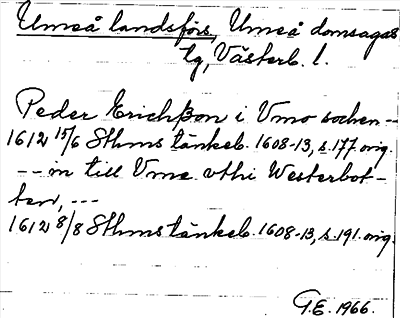 Umeå landsförs, Umeå domsagas
lg, Västerb. l.
Peder Erichßon i Vmo sochen --
1612 15/6 Sthms tänkeb. 1608-13, s.177 orig.
-- in till Vma vthi Westerbot-
ten, ---
1612 8/8 Sthms tänkeb. 1608-13, s.191 orig.
G.E. 1966.